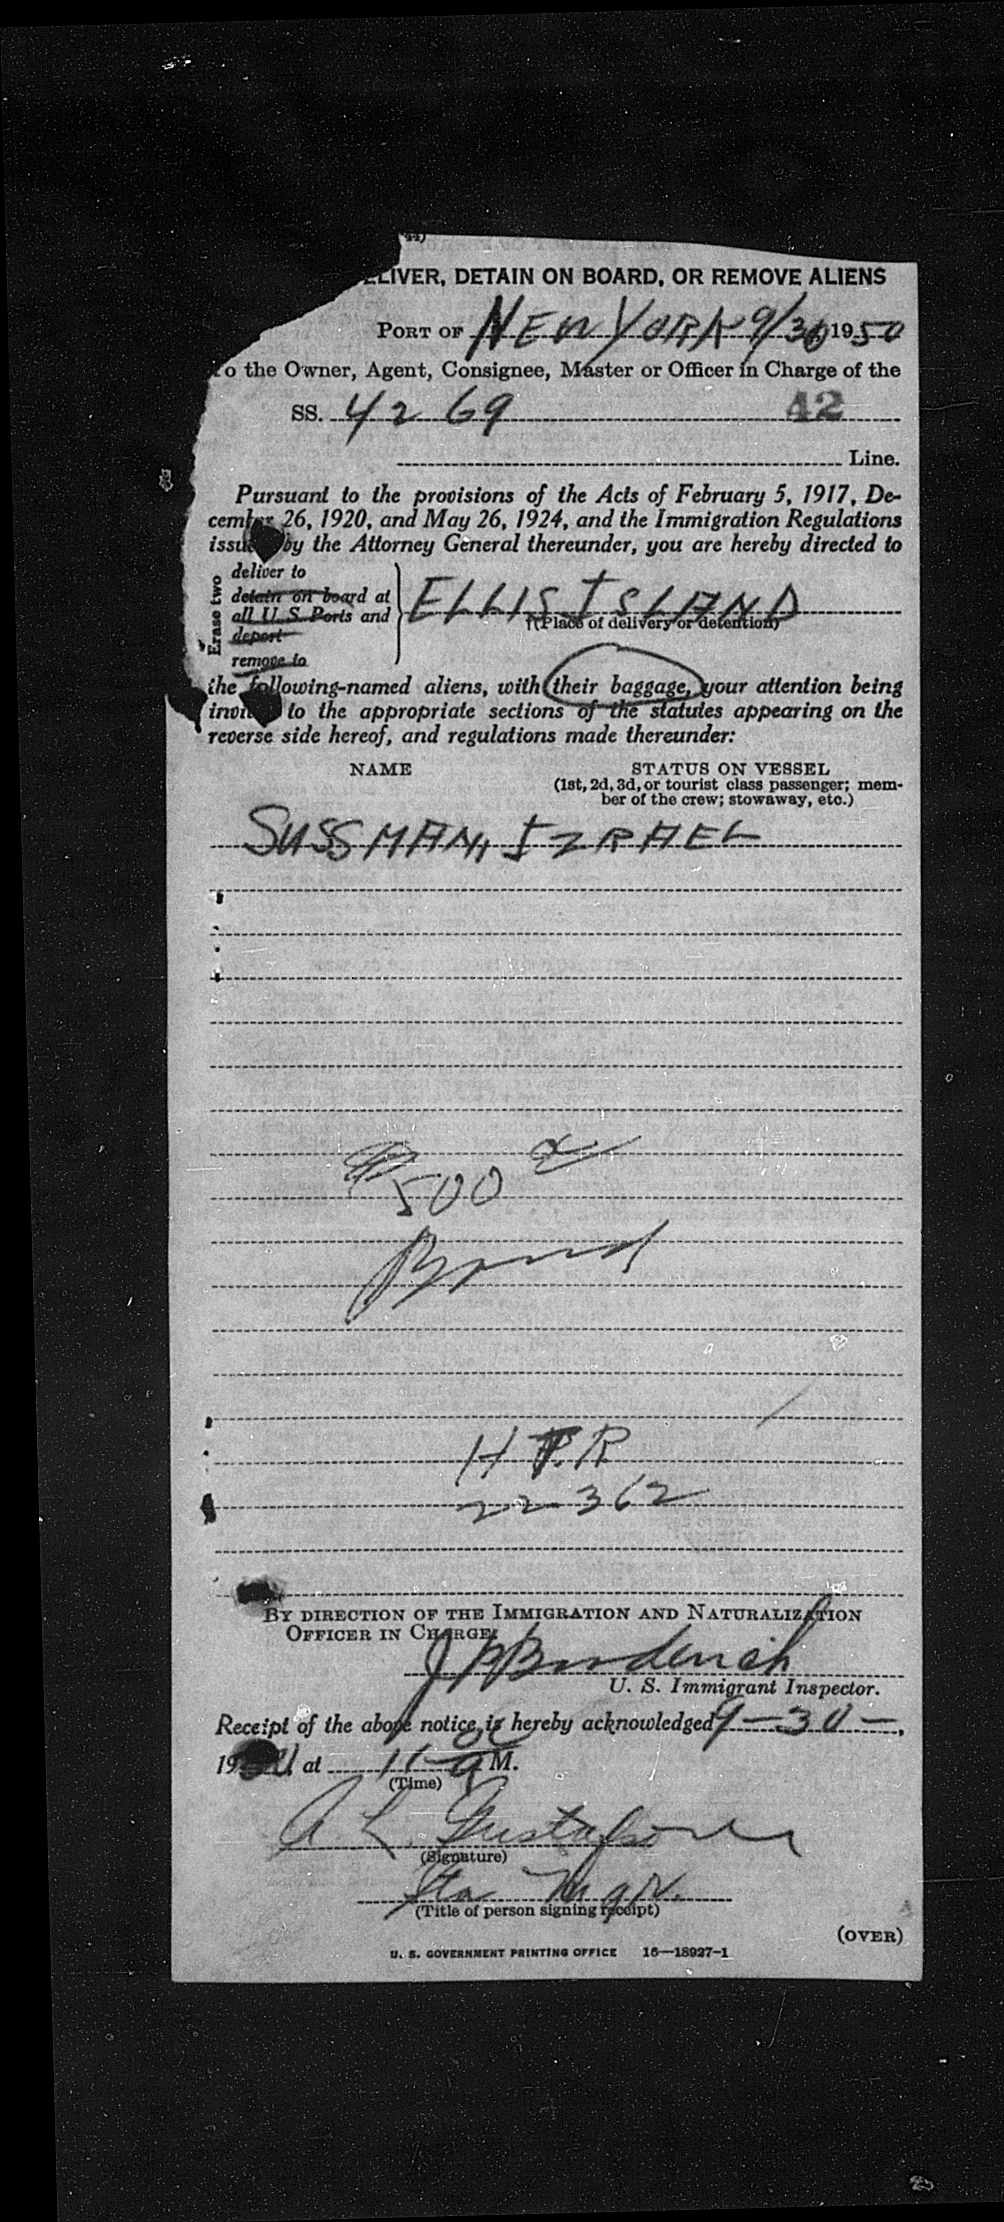 44)
ELIVER, DETAIN ON BOARD, OR REMOVE ALIENS
PORT OF NEW YORK 9/30 1950
To the Owner, Agent, Consignee, Master or Officer in Charge of the
SS. 4269 42
Line.
Pursuant to the provisions of the Acts of February 5, 1917, De-
cember 26, 1920, and May 26, 1924, and the Immigration Regulations
issued by the Attorney General thereunder, you are hereby directed to
Erase two
deliver to
detain on board at
all U. S. Ports and
deport
remove to
ELLIS ISLAND
†(Place of delivery or detention)
the following-named aliens, with their baggage, your attention being
invited to the appropriate sections of the statutes appearing on the
reverse side hereof, and regulations made thereunder:
NAME STATUS ON VESSEL
(1st, 2d, 3d, or tourist class passenger; mem-
ber of the crew; stowaway, etc.)
SUSSMAN, IZRAEL
$500
Bond
H P.R
22-362
BY DIRECTION OF THE IMMIGRATION AND NATURALIZATION
OFFICER IN CHARGE:
U. S. Immigrant Inspector.
Receipt of the above notice is hereby acknowledged 9-30-,
19 at 11 A M.
(Time)
A L. Gustafson
(Signature)
Sta Mgr.
(Title of person signing receipt)
(OVER)
U. S. GOVERNMENT PRINTING OFFICE 16—18927-1